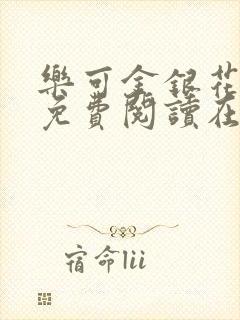 樂可金銀花
免費閱讀在
宿命lii